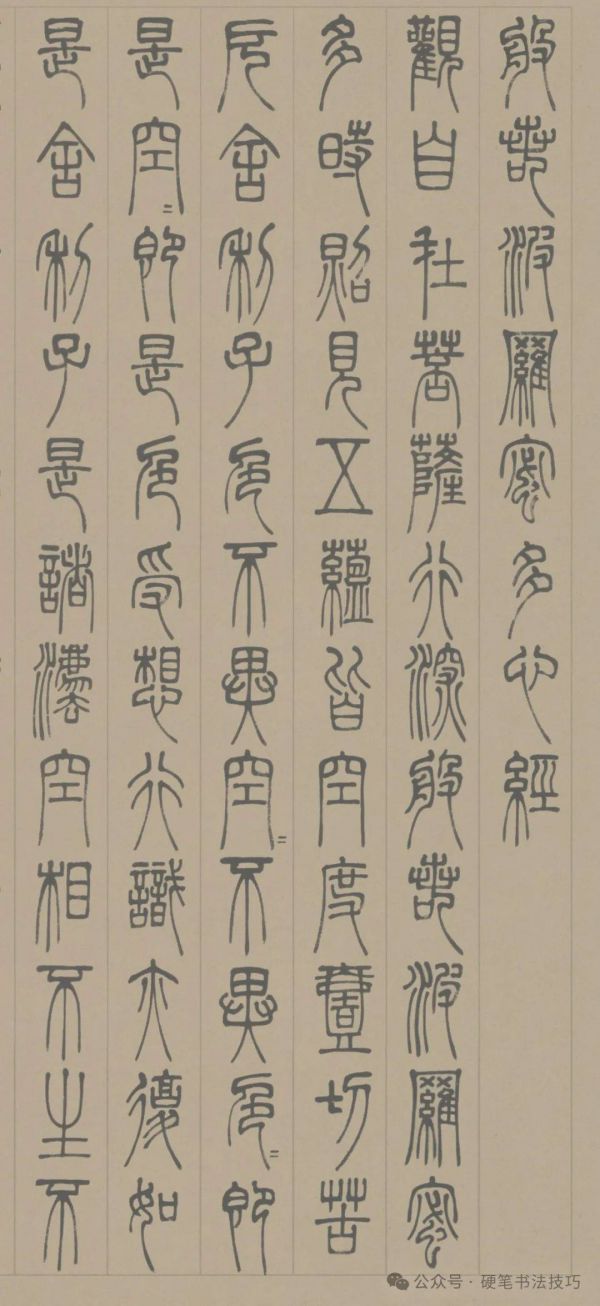 般若波羅蜜多心經
觀自在菩薩行深般若波羅蜜
多時照見五蘊皆空度壹切苦
厄舍利子色不異空〻不異色〻即
是空〻即是色受想行識亦復如
是舍利子是諸法空相不生不
公众号 · 硬笔书法技巧